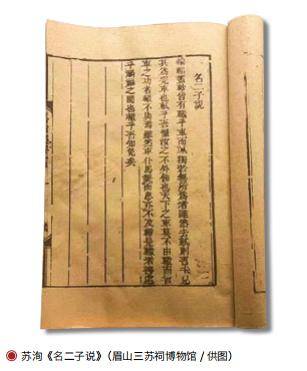 名二子説
輪輻蓋軫皆有職乎車而軾獨若無所為者雖然去軾則吾未見
其為完車也軾乎吾懼汝之不外飾也天下之車莫不由轍而言
車之功者轍不與焉雖然車仆馬斃而患亦不及轍是轍者善處
乎禍福之間也轍乎吾知免矣
苏洵《名二子说》(眉山三苏祠博物馆 / 供图)